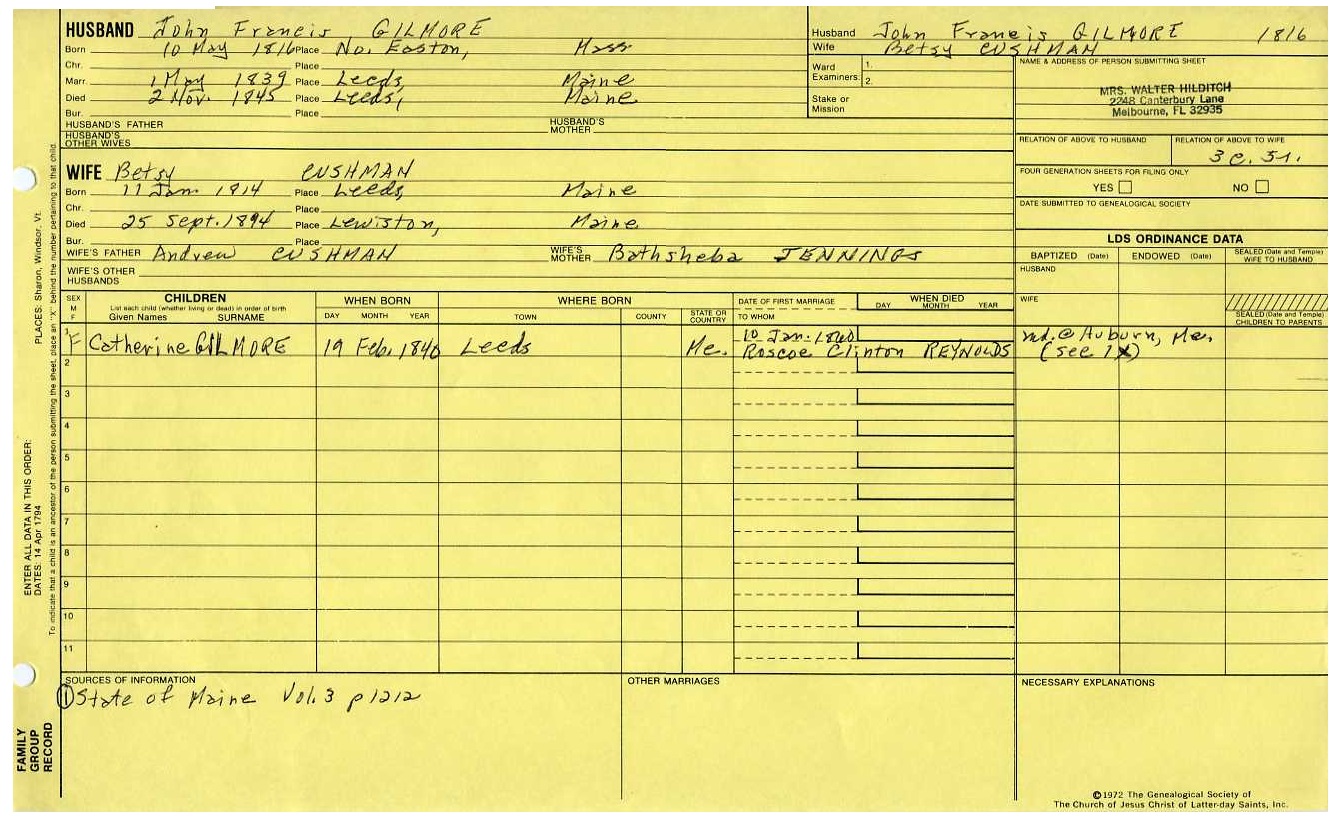 HUSBAND John Francis GILMORE
Born 10 May 1816 Place No. Easton, Mass
Chr. Place
Marr. 1 May 1839 Place Leeds, Maine
Died 2 Nov. 1845 Place Leeds, Maine
Bur. Place
HUSBAND'S FATHER HUSBAND'S MOTHER
HUSBAND'S OTHER WIVES
Husband John Francis GILMORE 1816
Wife Betsy CUSHMAN
Ward Examiners: 1. 2.
Stake or Mission
NAME & ADDRESS OF PERSON SUBMITTING SHEET
MRS. WALTER HILDITCH
2248 Canterbury Lane
Melbourne, FL 32935
RELATION OF ABOVE TO HUSBAND RELATION OF ABOVE TO WIFE
3c. 5r.
WIFE Betsy CUSHMAN
Born 11 Jan 1814 Place Leeds, Maine
Chr. Place
Died 25 Sept. 1894 Place Lewiston, Maine
Bur. Place
WIFE'S FATHER Andrew CUSHMAN WIFE'S MOTHER Bathsheba JENNINGS
WIFE'S OTHER HUSBANDS
FOUR GENERATION SHEETS FOR FILING ONLY
YES NO
DATE SUBMITTED TO GENEALOGICAL SOCIETY
LDS ORDINANCE DATA
BAPTIZED (Date) ENDOWED (Date) SEALED (Date and Temple) WIFE TO HUSBAND
HUSBAND
WIFE
SEALED (Date and Temple) CHILDREN TO PARENTS
SEX M F
CHILDREN
List each child (whether living or dead) in order of birth
Given Names SURNAME
WHEN BORN
DAY MONTH YEAR
WHERE BORN
TOWN COUNTY STATE OR COUNTRY
DATE OF FIRST MARRIAGE
TO WHOM
WHEN DIED
DAY MONTH YEAR
1 F Catherine GILMORE 19 Feb. 1840 Leeds Me. 10 Jan. 1860 md. @ Auburn, Me.
Roscoe Clinton REYNOLDS (see 1x)
2
3
4
5
6
7
8
9
10
11
SOURCES OF INFORMATION
① State of Maine Vol. 3 p 1212
OTHER MARRIAGES
NECESSARY EXPLANATIONS
©1972 The Genealogical Society of
The Church of Jesus Christ of Latter-day Saints, Inc.
FAMILY GROUP RECORD
ENTER ALL DATA IN THIS ORDER:
DATES: 14 Apr 1794
PLACES: Sharon, Windsor, Vt.
To indicate that a child is an ancestor of the person submitting the sheet, place an "X" behind the number pertaining to that child.